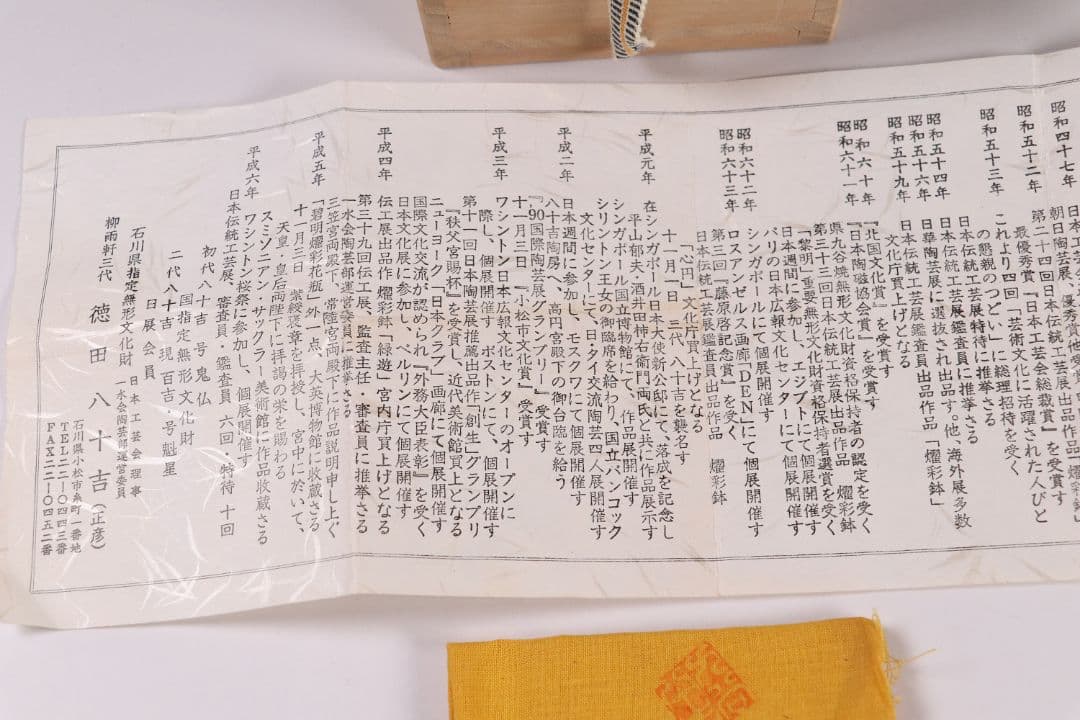 昭和四十七年
朝日陶芸展
昭和五十二年
第二十四回日本伝統工芸展出品作
最優秀賞「日本工芸会総裁賞」を受賞す
これより四回「芸術文化に活躍された人びと
の懇親のつどい」に総理招待を受く
昭和五十三年
日本伝統工芸展特待に推挙さる
昭和五十四年
日本伝統工芸展鑑査員に推挙さる
昭和五十六年
日華陶芸展に選抜され出品す。他、海外展多数
昭和五十九年
日本伝統工芸展鑑査員出品作品「燿彩鉢」
文化庁買上げとなる
昭和六十年
『北国文化賞』を受賞す
『日本陶磁協会賞』を受賞す
昭和六十一年
県九谷焼無形文化財資格保持者の認定を受く
第三十三回日本伝統工芸展出品作品 燿彩鉢
「黎明」重要無形文化財資格保持者選賞を受く
日本週間に参加し、エジプトにて個展開催す
パリの日本広報文化センターにて個展開催す
シンガポールにて個展開催す
昭和六十二年
ロスアンゼルス画廊「DEN」にて個展開催す
昭和六十三年
第三回『藤原啓記念賞』を受く
日本伝統工芸展鑑査員出品作品 燿彩鉢
「心円」文化庁買上げとなる
十一月一日 三代 八十吉を襲名す
平成元年
在シンガポール日本大使新公邸にて、落成を記念し
平山郁夫・酒井田柿右衛門両氏と共に作品展示す
シンガポール国立博物館にて、作品展開催す
シリントン王女の御臨席を給わり、国立バンコック
文化センターにて、日・タイ交流陶芸四人展開催す
平成二年
日本週間に参加し、モスクワにて個展開催す
八十吉陶房へ、高円宮殿下の御台臨を給う
『90国際陶芸展グランプリー』受賞す
十一月三日 『小松市文化賞』受賞す
平成三年
ワシントン日本広報文化センターのオープンに
際し、個展開催す ボストンにて、個展開催す
第十一回日本陶芸展推薦出品作「創生」グランプリ
『秩父宮賜杯』を受賞し、近代美術館買上となる
ニューヨーク「日本クラブ」画廊にて個展開催す
国際文化交流が認められ『外務大臣表彰』を受く
日本文化展に参加し、ベルリンにて個展開催す
平成四年
伝工展出品作品 燿彩鉢「緑遊」宮内庁買上げとなる
第三十九回伝工展、監査主任・審査員に推挙さる
一水会陶芸部運営委員に推挙さる
平成五年
三笠宮両殿下、常陸宮両殿下に作品説明申し上ぐ
「碧明燿彩花瓶」外一点、大英博物館に収蔵さる
十一月三日 紫綬褒章を拝授し、宮中に於いて、
天皇・皇后両陛下に拝謁の栄を賜わる
スミソニアン・サックラー美術館に作品収蔵さる
平成六年
ワシントン桜祭に参加し、個展開催す
日本伝統工芸展、審査員・鑑査員 六回・特待 十回
初代八十吉 号鬼仏
国指定無形文化財
二代八十吉 現 百吉・号魁星
日展会員
石川県指定無形文化財 日本工芸会理事
一水会陶芸部運営委員
柳雨軒三代 徳田八十吉(正彦)
石川県小松市糸町一番地
TEL二二-〇四四三番
FAX二二-〇四五二番